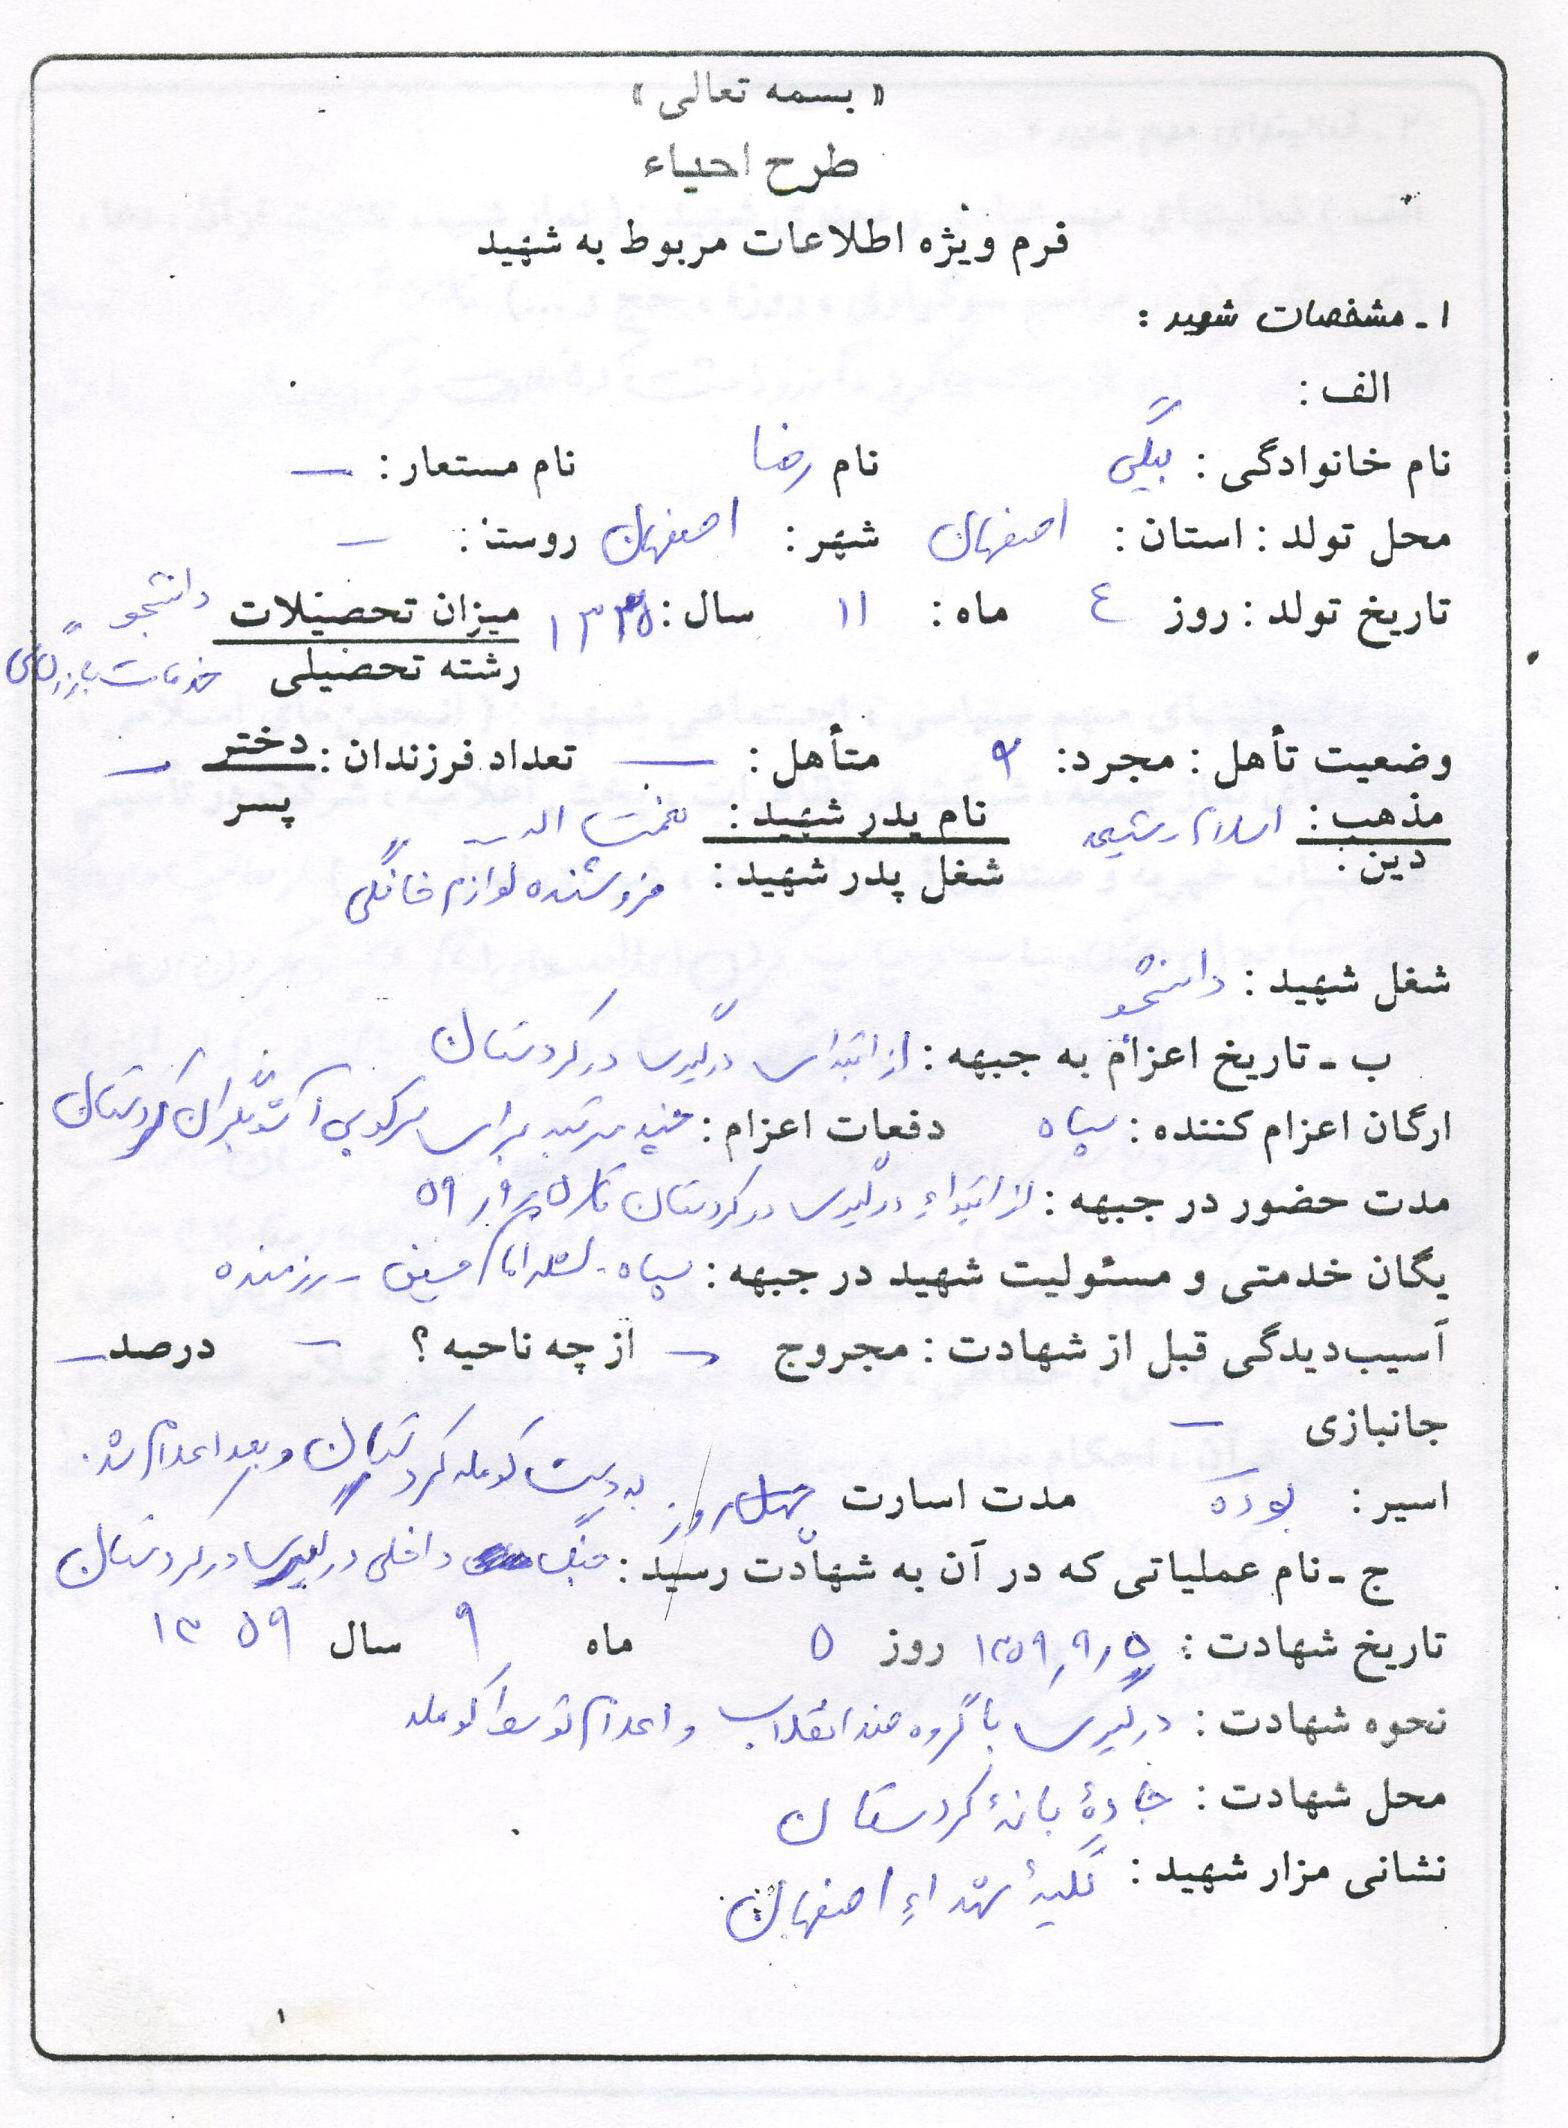 « بسمه تعالی »
طرح احیاء
فرم ویژه اطلاعات مربوط به شهید
۱ - مشخصات شهید :
الف :
نام خانوادگی : بیگی نام رضا نام مستعار : —
محل تولد : استان : اصفهان شهر : اصفهان روستا : —
تاریخ تولد : روز ٤ ماه : ۱۱ سال : میزان تحصیلات دانشجو
رشته تحصیلی خدمات بازرگانی
وضعیت تأهل : مجرد : متأهل : — تعداد فرزندان : دختر —
پسر
مذهب : اسلام شیعی نام پدر شهید : نعمت اله
دین : شغل پدر شهید : فروشنده لوازم خانگی
شغل شهید : دانشجو
ب - تاریخ اعزام به جبهه : از ابتدای درگیری در کردستان
ارگان اعزام کننده : سپاه دفعات اعزام : چند مرتبه برای سرکوبی آشوبگران کردستان
مدت حضور در جبهه : از ابتداء درگیری در کردستان تا ۵ ر ۹ ر ۵۹
یگان خدمتی و مسئولیت شهید در جبهه : سپاه - لشکر امام حسین - رزمنده
آسیب‌دیدگی قبل از شهادت : مجروح — از چه ناحیه ؟ — درصد —
جانبازی —
اسیر : بوده مدت اسارت چهل روز به دست کومله کردستان و بعد اعدام شد .
ج - نام عملیاتی که در آن به شهادت رسید : جنگ داخلی درگیری در کردستان
تاریخ شهادت : ۱۳۵۹٫۹٫۵ روز ۵ ماه ۹ سال ۱۳۵۹
نحوه شهادت : درگیری با گروه ضد انقلاب و اعدام توسط کومله
محل شهادت : جادهٔ بانهٔ کردستان
نشانی مزار شهید : تکیهٔ شهداء اصفهان
۱